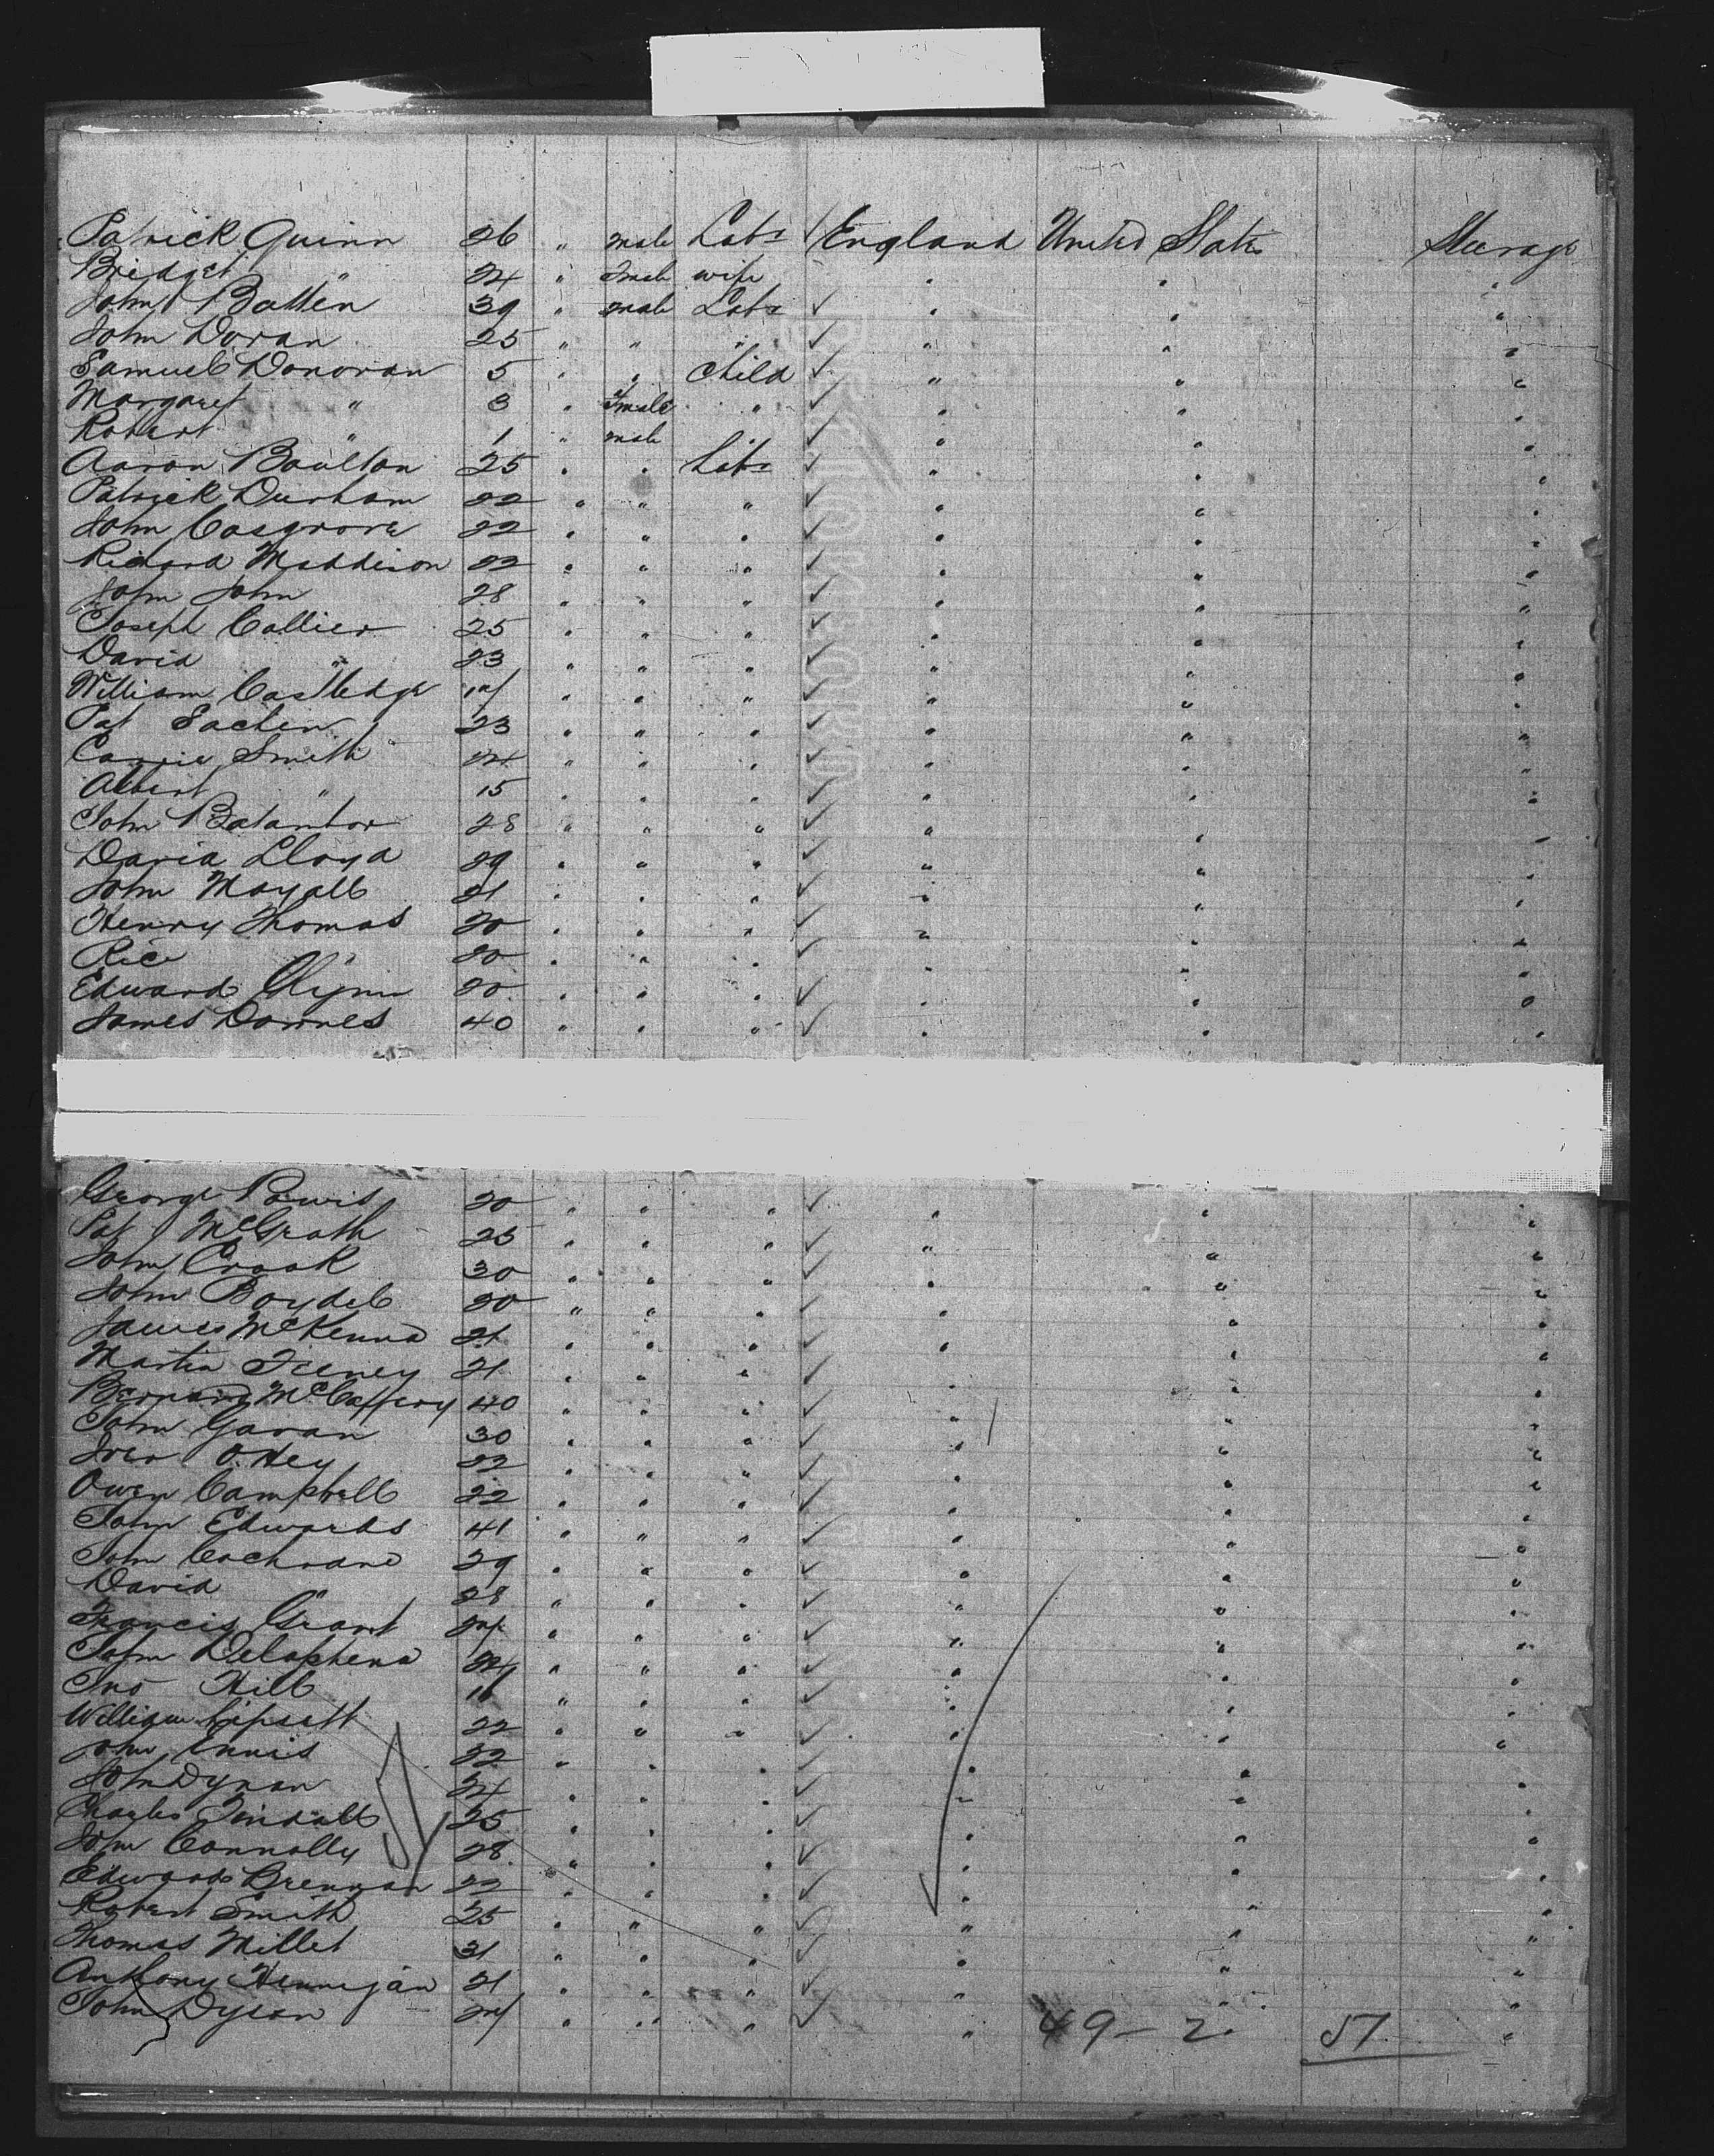 Patrick Quinn 26 " male Labr England United States Steerage
Bridget " 24 " Fmale wife " " "
John Batten 39 " male Labr " " "
John Doran 25 " " " " " "
Samuel Donovan 5 " " Child " " "
Margaret " 3 " Fmale " " " "
Robert " 1 " male " " " "
Aaron Boulton 25 " " Labr " " "
Patrick Durham 22 " " " " " "
John Cosgrove 22 " " " " " "
Richard Maddison 22 " " " " " "
John John 28 " " " " " "
Joseph Collier 25 " " " " " "
David " 23 " " " " " "
William Castledge " " " " " "
Pat 23 " " " " " "
Smith 24 " " " " " "
Albert " 15 " " " " " "
John 28 " " " " " "
David Lloyd 29 " " " " " "
John Mayall 21 " " " " " "
Henry Thomas 20 " " " " " "
Rice " 20 " " " " " "
Edward Glynn 20 " " " " " "
James Downes 40 " " " " " "
George Powis 20 " " " " " "
Pat McGrath 25 " " " " " "
John Crook 30 " " " " " "
John Boydel 20 " " " " " "
James McKenna 21 " " " " " "
Martin Feeney 21 " " " " " "
Bernard McCaffery 40 " " " " " "
John Gavan 30 " " " " " "
22 " " " " " "
Owen Campbell 22 " " " " " "
John Edwards 41 " " " " " "
John Cochrane 29 " " " " " "
David " 28 " " " " " "
Francis Grant 24 " " " " " "
John 24 " " " " " "
Jno Hill 16 " " " " " "
William Lipsett 22 " " " " " "
John Ennis 22 " " " " " "
John Dynan 24 " " " " " "
Charles Tindall 25 " " " " " "
John Connolly 28 " " " " " "
Edward Brennan 22 " " " " " "
Robert Smith 25 " " " " " "
Thomas Millet 31 " " " " " "
Anthony Hennigan 21 " " " " " "
John Dyson 24 " " " " 49-2 51 "